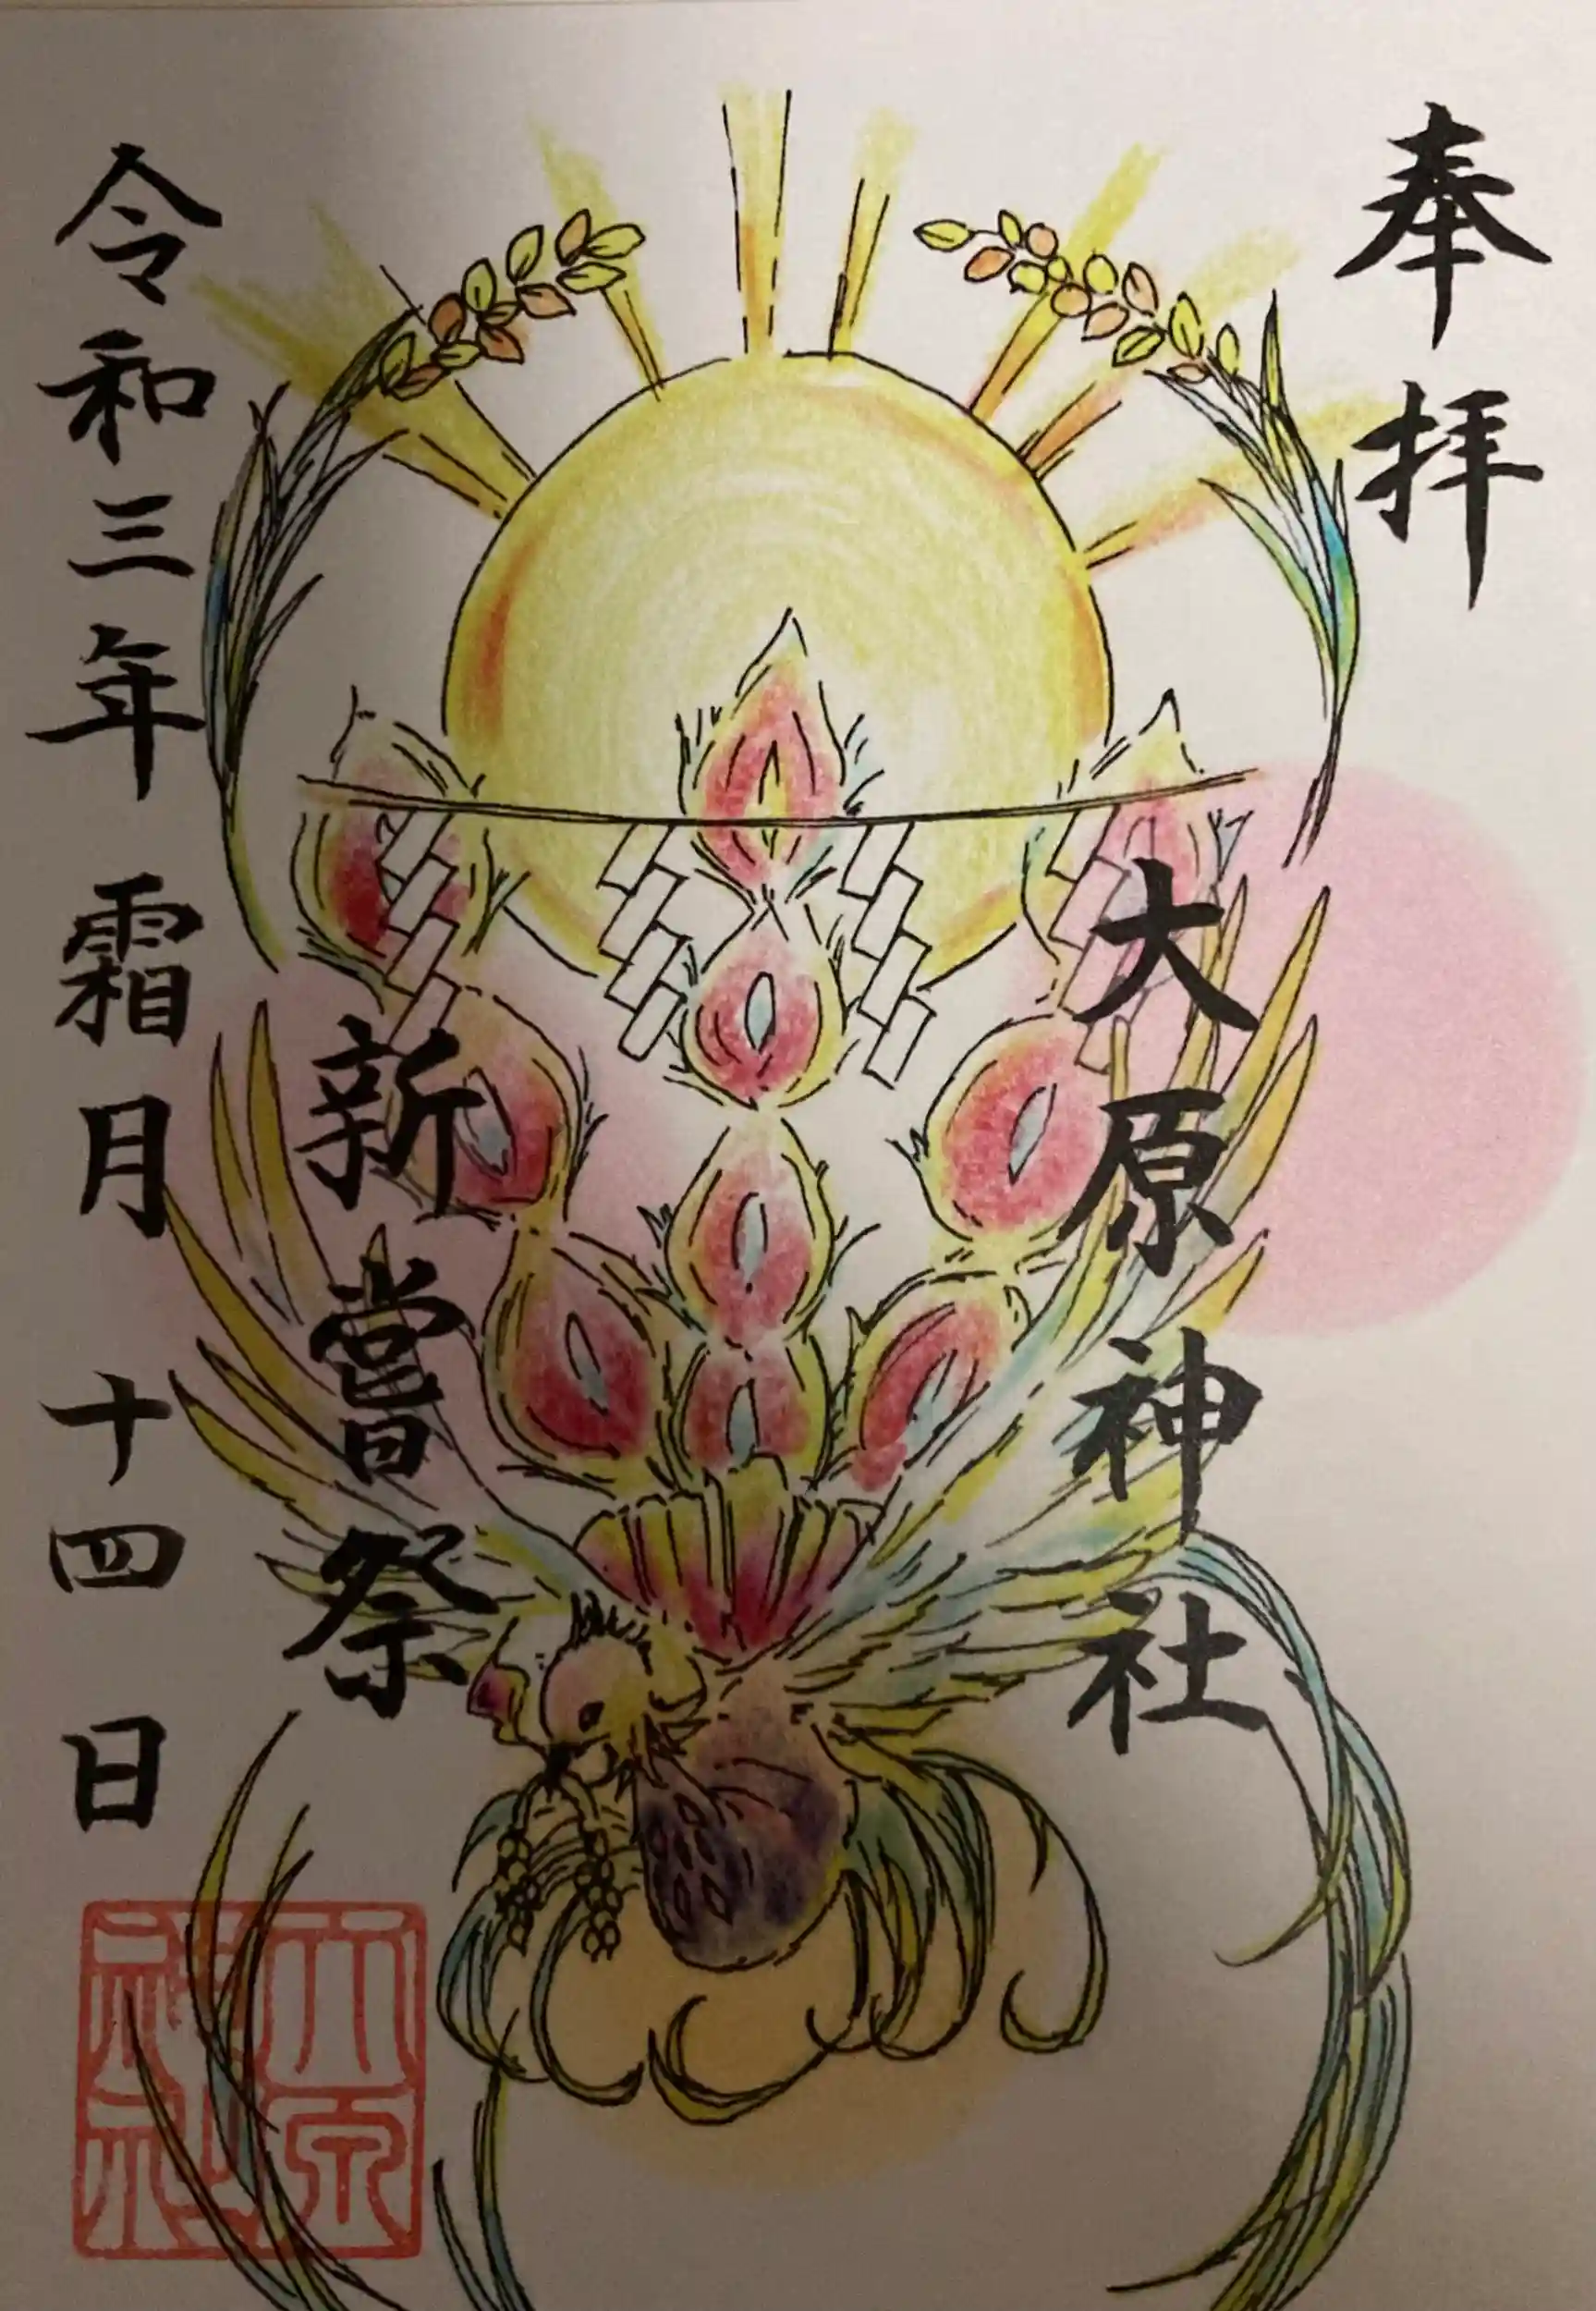 奉拝
大原神社
新嘗祭
令和三年 霜月 十四日
大原神社